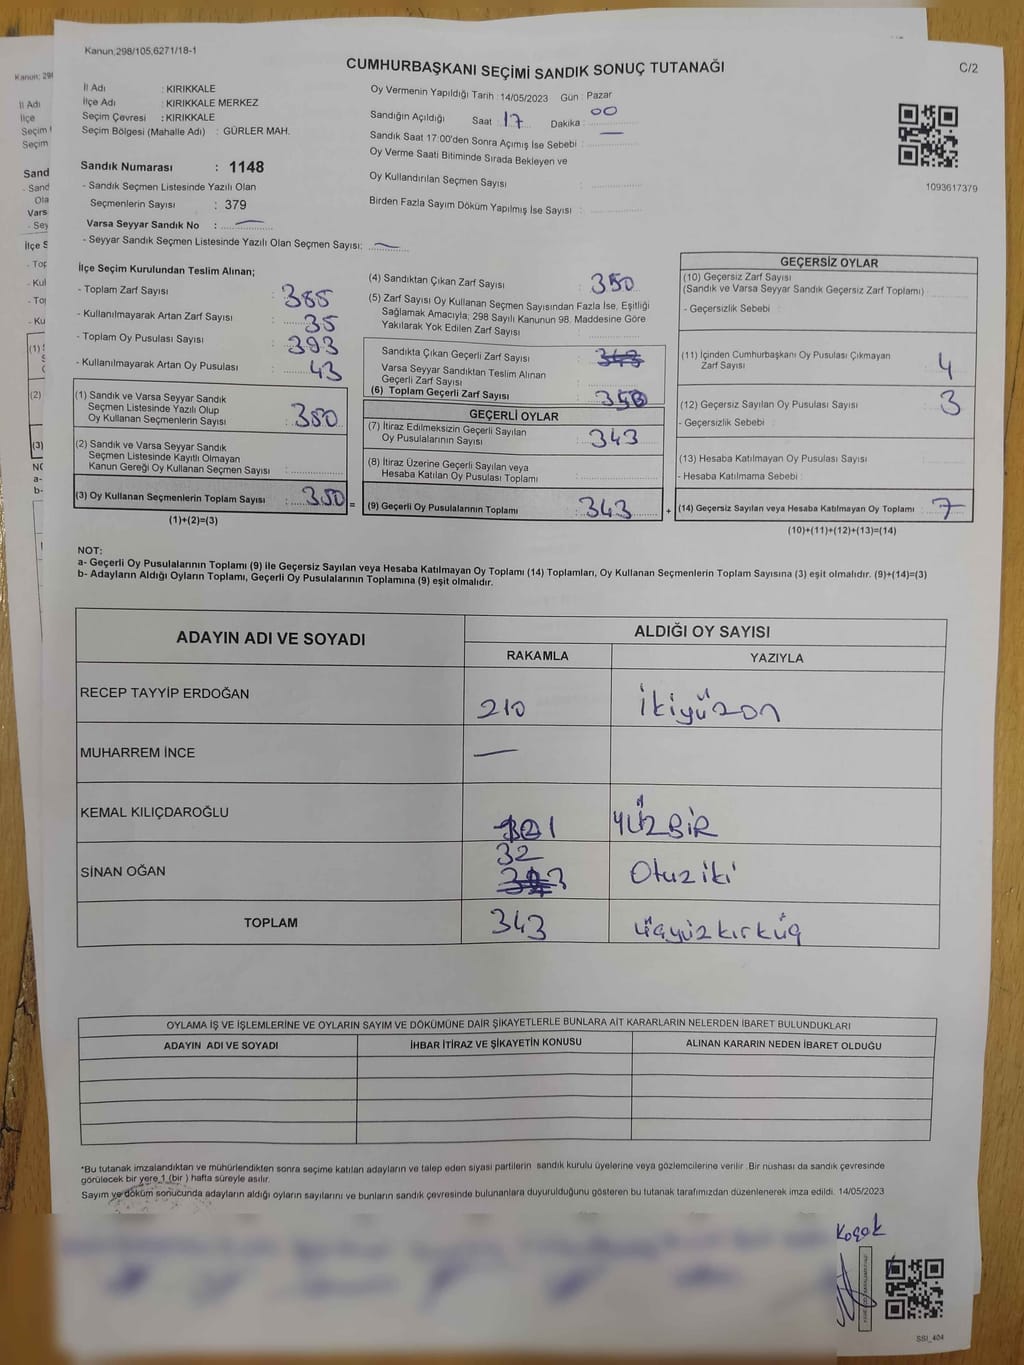 Kanun;298/105,6271/18-1
CUMHURBAŞKANI SEÇİMİ SANDIK SONUÇ TUTANAĞI
C/2
İl Adı : KIRIKKALE
İlçe Adı : KIRIKKALE MERKEZ
Seçim Çevresi : KIRIKKALE
Seçim Bölgesi (Mahalle Adı) : GÜRLER MAH.
Oy Vermenin Yapıldığı Tarih : 14/05/2023 Gün : Pazar
Sandığın Açıldığı Saat : 17 Dakika : 00
Sandık Saat 17:00'den Sonra Açımış İse Sebebi : —
Oy Verme Saati Bitiminde Sırada Bekleyen ve
Oy Kullandırılan Seçmen Sayısı :
Birden Fazla Sayım Döküm Yapılmış İse Sayısı :
1093617379
Sandık Numarası : 1148
- Sandık Seçmen Listesinde Yazılı Olan
Seçmenlerin Sayısı : 379
Varsa Seyyar Sandık No : —
- Seyyar Sandık Seçmen Listesinde Yazılı Olan Seçmen Sayısı: —
İlçe Seçim Kurulundan Teslim Alınan;
- Toplam Zarf Sayısı : 385
- Kullanılmayarak Artan Zarf Sayısı : 35
- Toplam Oy Pusulası Sayısı : 393
- Kullanılmayarak Artan Oy Pusulası : 43
(1) Sandık ve Varsa Seyyar Sandık
Seçmen Listesinde Yazılı Olup
Oy Kullanan Seçmenlerin Sayısı : 350
(2) Sandık ve Varsa Seyyar Sandık
Seçmen Listesinde Kayıtlı Olmayan
Kanun Gereği Oy Kullanan Seçmen Sayısı :
(3) Oy Kullanan Seçmenlerin Toplam Sayısı : 350 =
(1)+(2)=(3)
(4) Sandıktan Çıkan Zarf Sayısı : 350
(5) Zarf Sayısı Oy Kullanan Seçmen Sayısından Fazla İse, Eşitliği
Sağlamak Amacıyla; 298 Sayılı Kanunun 98. Maddesine Göre
Yakılarak Yok Edilen Zarf Sayısı
Sandıkta Çıkan Geçerli Zarf Sayısı : 343
Varsa Seyyar Sandıktan Teslim Alınan
Geçerli Zarf Sayısı
(6) Toplam Geçerli Zarf Sayısı : 350
GEÇERLİ OYLAR
(7) İtiraz Edilmeksizin Geçerli Sayılan
Oy Pusulalarının Sayısı : 343
(8) İtiraz Üzerine Geçerli Sayılan veya
Hesaba Katılan Oy Pusulası Toplamı :
(9) Geçerli Oy Pusulalarının Toplamı : 343 +
GEÇERSİZ OYLAR
(10) Geçersiz Zarf Sayısı
(Sandık ve Varsa Seyyar Sandık Geçersiz Zarf Toplamı) :
- Geçersizlik Sebebi :
(11) İçinden Cumhurbaşkanı Oy Pusulası Çıkmayan
Zarf Sayısı : 4
(12) Geçersiz Sayılan Oy Pusulası Sayısı : 3
- Geçersizlik Sebebi :
(13) Hesaba Katılmayan Oy Pusulası Sayısı :
- Hesaba Katılmama Sebebi :
(14) Geçersiz Sayılan veya Hesaba Katılmayan Oy Toplamı : 7
(10)+(11)+(12)+(13)=(14)
NOT:
a- Geçerli Oy Pusulalarının Toplamı (9) ile Geçersiz Sayılan veya Hesaba Katılmayan Oy Toplamı (14) Toplamları, Oy Kullanan Seçmenlerin Toplam Sayısına (3) eşit olmalıdır. (9)+(14)=(3)
b- Adayların Aldığı Oyların Toplamı, Geçerli Oy Pusulalarının Toplamına (9) eşit olmalıdır.
ADAYIN ADI VE SOYADI
ALDIĞI OY SAYISI
RAKAMLA YAZIYLA
RECEP TAYYİP ERDOĞAN 210 ikiyüzon
MUHARREM İNCE —
KEMAL KILIÇDAROĞLU 101 YÜZBİR
SİNAN OĞAN 32 Otuziki
TOPLAM 343 üçyüzkırküç
OYLAMA İŞ VE İŞLEMLERİNE VE OYLARIN SAYIM VE DÖKÜMÜNE DAİR ŞİKAYETLERLE BUNLARA AİT KARARLARIN NELERDEN İBARET BULUNDUKLARI
ADAYIN ADI VE SOYADI İHBAR İTİRAZ VE ŞİKAYETİN KONUSU ALINAN KARARIN NEDEN İBARET OLDUĞU
*Bu tutanak imzalandıktan ve mühürlendikten sonra seçime katılan adayların ve talep eden siyasi partilerin sandık kurulu üyelerine veya gözlemcilerine verilir .Bir nüshası da sandık çevresinde
görülecek bir yere 1 (bir ) hafta süreyle asılır.
Sayım ve döküm sonucunda adayların aldığı oyların sayılarını ve bunların sandık çevresinde bulunanlara duyurulduğunu gösteren bu tutanak tarafımızdan düzenlenerek imza edildi. 14/05/2023
Koçak
SSİ_404